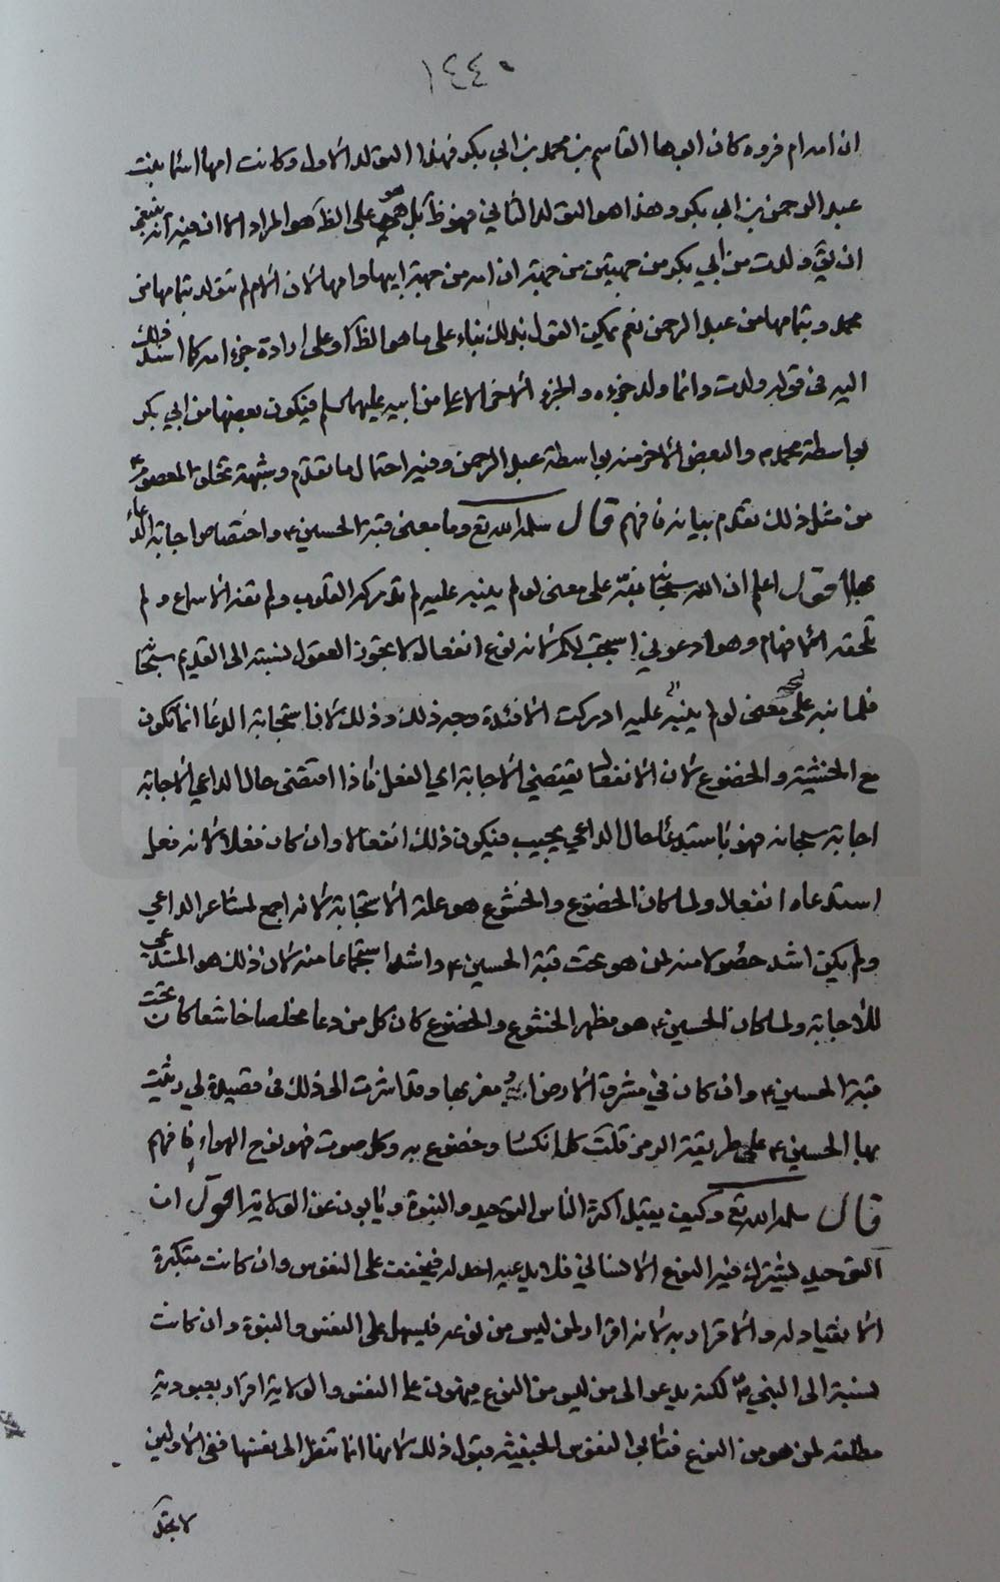 ١٤٤٠
ان امه ام فروه كان ابوها القاسم بن محمد بن ابي بكر فهذا التولد الاول وكانت امها اسماء بنت
عبد الرحمن بن ابي بكر وهذا هو التولد الثاني فهو ظ بل هو على الظ هو المراد الا ان فيه انه ينبغي
ان يق ولدت من ابي بكر من جهتين من جهة ان امه من جهة ابيها وامها لان الام لم تتولد بتمامها من
محمد وبتمامها من عبد الرحمن نعم يمكن القول بذلك بناء على ما هو الظ او على ارادة جزء امه كما اسند ذلك
اليه في قوله ولدت وانما ولد جزءه والجزء الاخر الاعلى من ابيه عليهما السلم فيكون بعضها من ابي بكر
بواسطة محمد والبعض الاخر منه بواسطة عبد الرحمن وفيه احتمال ما تقدم وشبهة تخلق المعصوم ع
من مثل ذلك تقدم بيانه فافهم قال سلمه الله تع وما معنى قبة الحسين ع واختصاص اجابة الدعاء
بها اقول اعلم ان الله سبحانه نبّه على معنى لو لم ينبه عليه لم تدركه القلوب ولم تقف الاسماع ولم
تلحقه الافهام وهو ادعوني استجب لكم لانه نوع انفعال لا تجوز العقول نسبته الى القديم سبحانه
فلما نبه على معنى لو لم ينبه عليه ادركت الافئدة وجه ذلك وذلك لان استجابة الدعا انما تكون
مع الخشية والخضوع لان الانفعال يقتضي الاجابة اي الفعل فاذا اقتضى حال الداعي الاجابة
اجابه سبحانه فهو باستدعاء حال الداعي يجيب فيكون ذلك انفعالا وان كان فعلا لانه فعل
استدعاه انفعال ولما كان الخضوع والخشوع هو علة الاستجابة لانه اجمع لمشاعر الداعي
ولم يكن اشد حضورا منه لمن هو تحت قبة الحسين ع واشد استجماعا منه لان ذلك هو المستدعي
للاجابة ولما كان الحسين ع هو مظهر الخشوع والخضوع كان كل من دعا مخلصا خاشعا كان تحت
قبة الحسين ع وان كان في مشرق الارض او مغربها وقد اشرت الى ذلك في قصيدة لي رثيت
بها الحسين ع على طريقة الرمز قلت كل انكسار وخضوع به وكل صوت فهو نوح الهواء فافهم
قال سلمه الله تع وكيف يقبل اكثر الناس التوحيد والنبوة ويابون عن الولاية اقول ان
التوحيد لم يشترك فيه النوع الانساني فلا يدعيه احد له فيخفت على النفوس وان كانت متكبرة
الانقياد له والاقرار به لانه اقرار لمن ليس من نوعه فليسهل على النفس والنبوة وان كانت
نسبة الى النبي ص لكنه يدعو الى من ليس من النوع فيهون على النفس والولاية اقرار بعبودية
مطلقة لمن هو من النوع فتأبى النفوس الخبيثة قبول ذلك لانها انما تنظر الى نفسها ففي الاولين
لا تجد